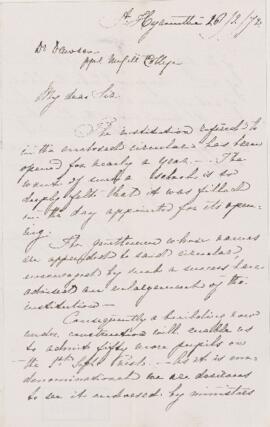 St Hyacinthe 26/2/72
Dr Dawson
ppal McGill College
My dear Sir
The institution referred to
in the enclosed circular has been
opened for nearly a year. – The
want of such a school is so
deeply felt that it was filled
on the day appointed for its open-
ing.
The gentlemen whose names
are appended to said circular,
encouraged by such a success have
advised an enlargement of the
institution –
Consequently a building now
under construction will enable us
to admit fifty more pupils on
the 1st Sept next. – As it is un-
denominational we are desirous
to see it endorsed by ministers